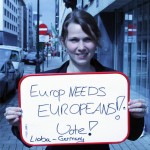 Europ NEEDS
EUROPEANS!!
Vote!
Lioba - Germany